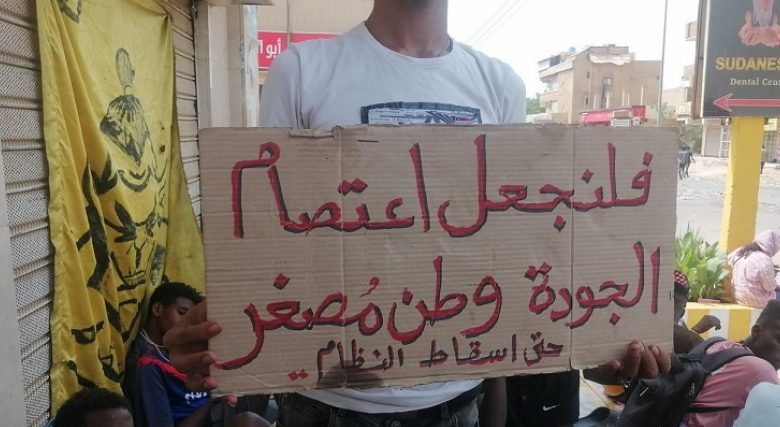 أبو ا
SUDANES
Dental Cen
فلنجعل اعتصام
الجودة وطن مُصغر
حتى اسقاط النظام